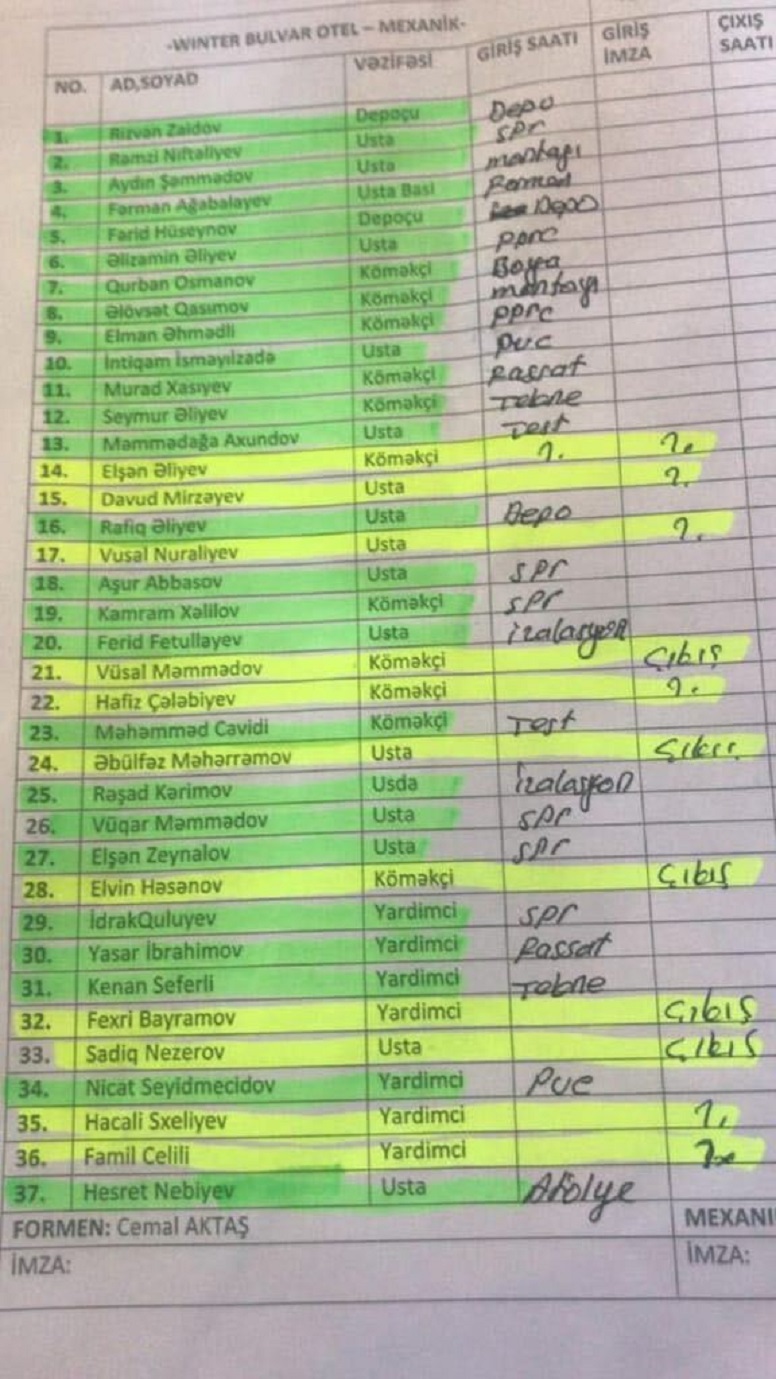 -WINTER BULVAR OTEL – MEXANİK-
NO. AD,SOYAD VƏZİFƏSİ GİRİŞ SAATI GİRİŞ İMZA ÇIXIŞ SAATI
1. Rizvan Zaidov Depoçu Depo
2. Ramzi Niftaliyev Usta SPr
3. Aydın Şəmmədov Usta montajı
4. Fərman Ağabalayev Usta Basi
5. Fərid Hüseynov Depoçu Depo
6. Əlizamin Əliyev Usta PPrc
7. Qurban Osmanov Köməkçi Boya
8. Əlövsət Qasımov Köməkçi montajı
9. Elman Əhmədli Köməkçi PPrc
10. İntiqam İsmayılzadə Usta Pvc
11. Murad Xasıyev Köməkçi Passat
12. Seymur Əliyev Köməkçi
13. Məmmədağa Axundov Usta Test
14. Elşən Əliyev Köməkçi ?. ?.
15. Davud Mirzəyev Usta ?.
16. Rafiq Əliyev Usta Depo
17. Vusal Nuraliyev Usta ?.
18. Aşur Abbasov Usta SPr
19. Kamram Xəlilov Köməkçi SPr
20. Ferid Fetullayev Usta izalasyon
21. Vüsal Məmmədov Köməkçi Çıkış
22. Hafiz Çələbiyev Köməkçi ?.
23. Məhəmməd Cavidi Köməkçi Test
24. Əbülfəz Məhərrəmov Usta Çıkış
25. Rəşad Kərimov Usda İzalasyon
26. Vüqar Məmmədov Usta SPr
27. Elşən Zeynalov Usta SPr
28. Elvin Həsənov Köməkçi Çıkış
29. İdrakQuluyev Yardimci SPr
30. Yasar İbrahimov Yardimci Passat
31. Kenan Seferli Yardimci
32. Fexri Bayramov Yardimci Çıkış
33. Sadiq Nezerov Usta Çıkış
34. Nicat Seyidmecidov Yardimci Pvc
35. Hacali Sxeliyev Yardimci ?.
36. Famil Celili Yardimci ?.
37. Hesret Nebiyev Usta Atolye
FORMEN: Cemal AKTAŞ MEXANI
İMZA: İMZA: